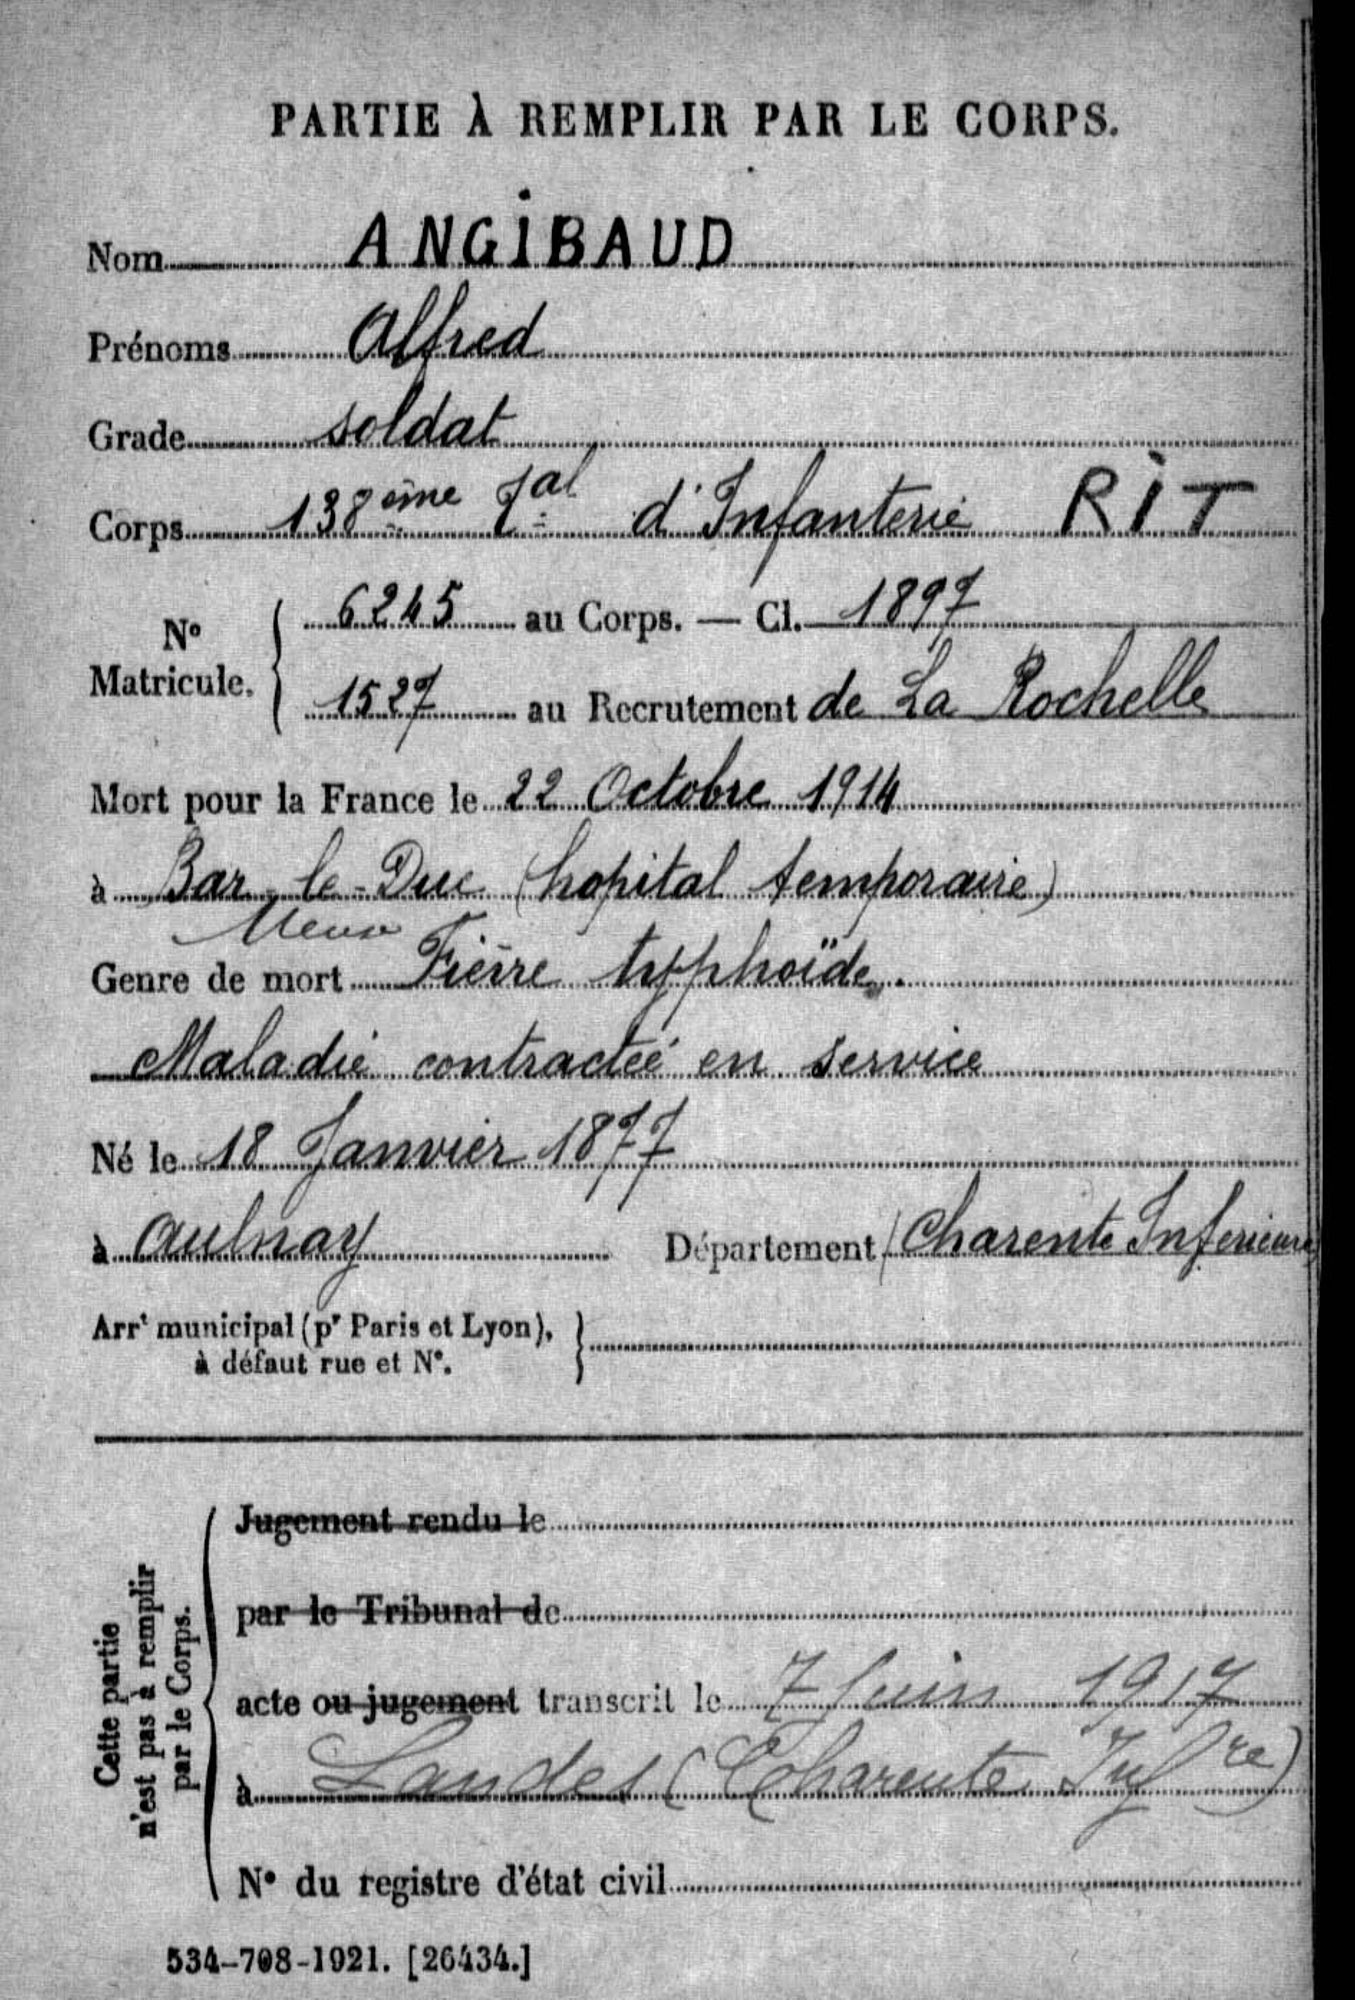 PARTIE À REMPLIR PAR LE CORPS.
Nom ANGIBAUD
Prénoms Alfred
Grade soldat
Corps 138ème Tal d'Infanterie RIT
No Matricule. 6245 au Corps. — Cl. 1897
1527 au Recrutement de La Rochelle
Mort pour la France le 22 Octobre 1914
à Bar-le-Duc (hopital temporaire)
Meuse
Genre de mort Fièvre typhoïde.
Maladie contractée en service
Né le 18 Janvier 1877
à Aulnay Département (Charente Inferieure)
Arrt municipal (pr Paris et Lyon),
à défaut rue et N°.
Cette partie
n'est pas à remplir
par le Corps.
Jugement rendu le
par le Tribunal de
acte ou jugement transcrit le 7 Juin 1917
à Landes (Charente Infre)
N° du registre d'état civil
534-708-1921. [26434.]